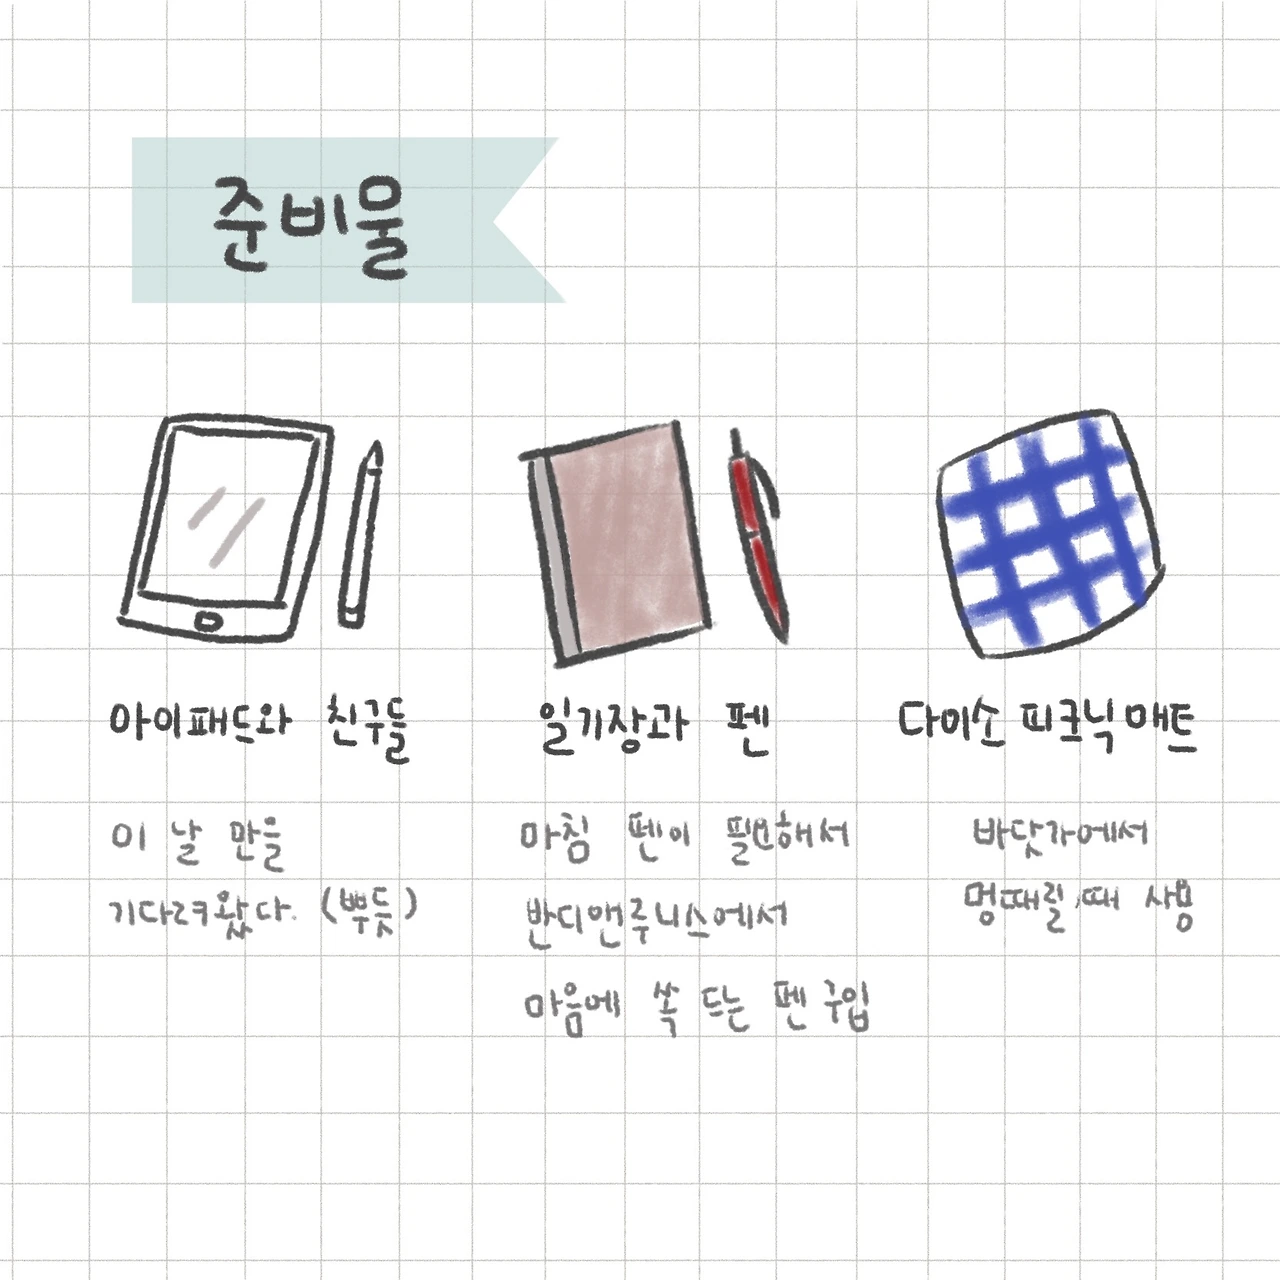 준비물
아이패드와 친구들
이 날 만을
기다려왔다. (뿌듯)
일기장과 펜
마침 펜이 필요해서
반디앤루니스에서
마음에 쏙 드는 펜 구입
다이소 피크닉매트
바닷가에서
멍때릴 때 사용